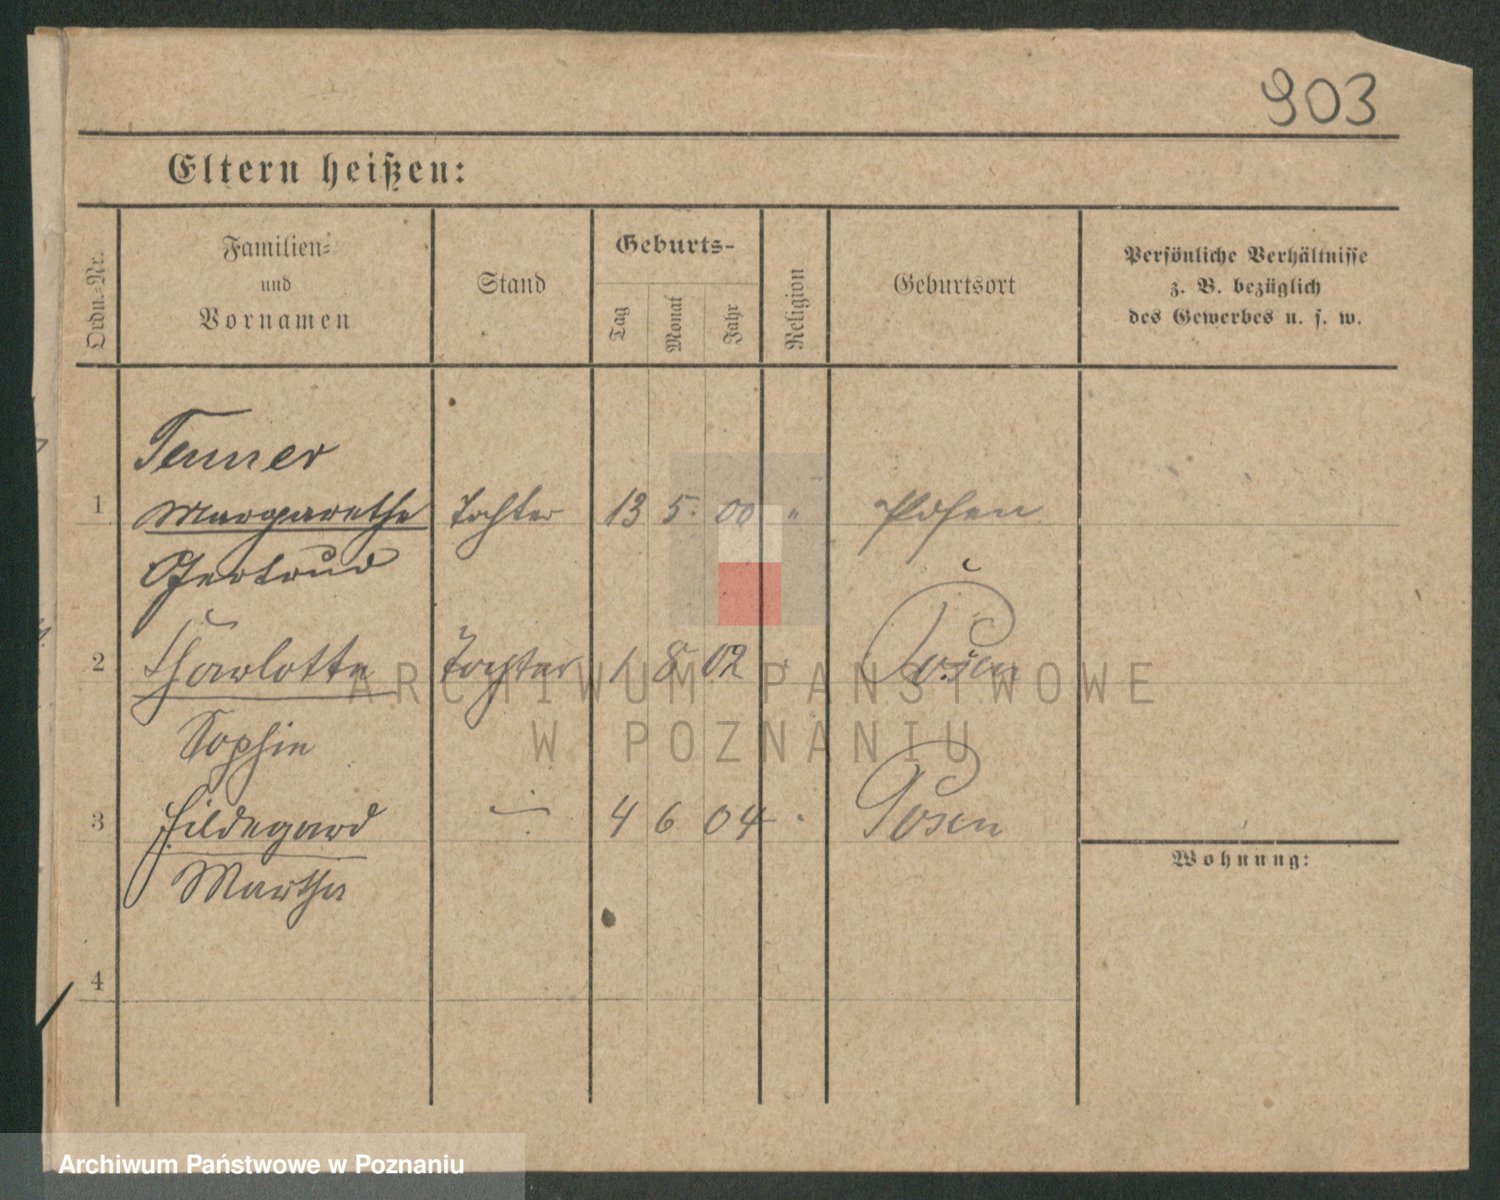 903
Eltern heißen:
Ordn.-Nr.
Familien- und Vornamen
Stand
Geburts-
Tag
Monat
Jahr
Religion
Geburtsort
Persönliche Verhältnisse
z. B. bezüglich
des Gewerbes u. s. w.
Tenner
1 Margarethe Tochter 13 5. 00 " Posen
Gertrud
2 Charlotte Tochter 1 8 02 " Posen
Sophie
3 Hildegard -"- 4 6 04 " Posen
Martha
Wohnung:
4
ARCHIWUM PAŃSTWOWE
W POZNANIU
Archiwum Państwowe w Poznaniu